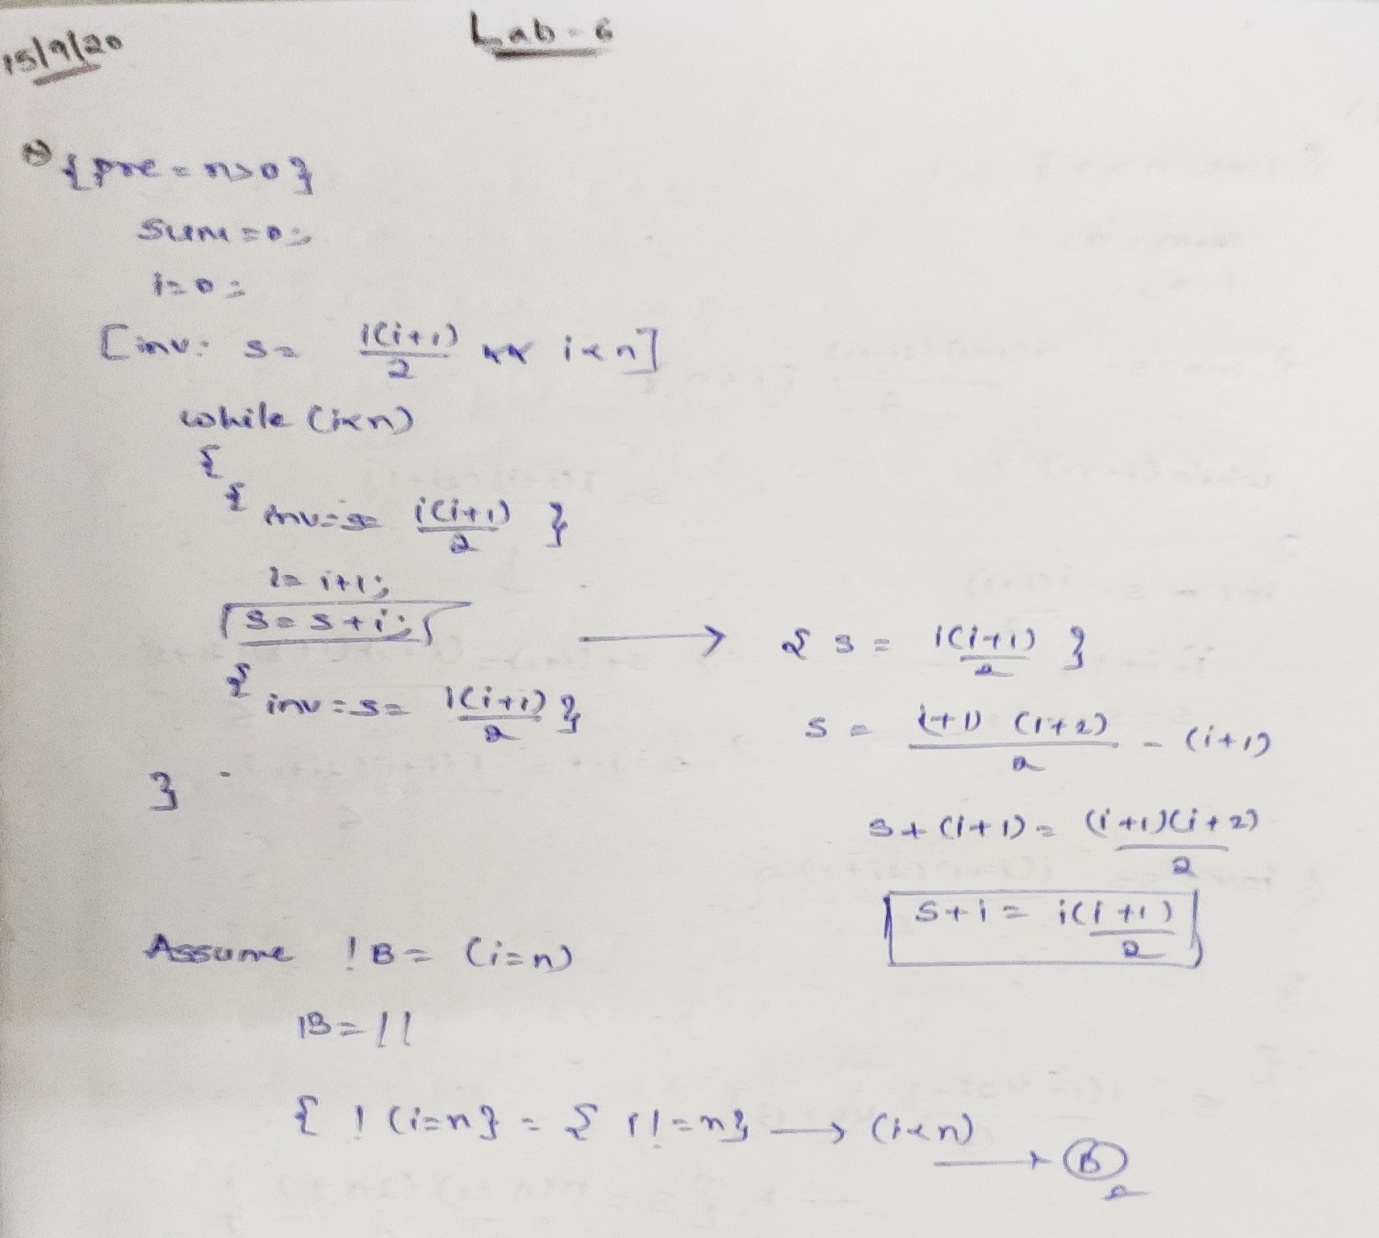 15/9/20
Lab-6
{pre = n>0}
sum=0;
i=0;
[inv: s= i(i+1)/2 && i<n]
while (i<n)
{
{ inv=s= i(i+1)/2 }
i= i+1;
s=s+i;
{ inv=s= i(i+1)/2 }
}
→ { s = i(i+1)/2 }
s = (i+1) (i+2)/2 - (i+1)
s+(i+1)= (i+1)(i+2)/2
s+i= i(i+1)/2
Assume !B= (i=n)
{ !(i=n} = { i!=n} → (i<n)
→ B